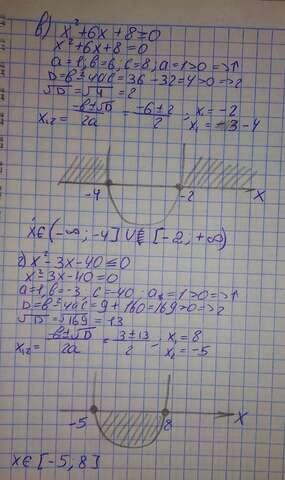 в) x²+6x+8≥0
x²+6x+8=0
a=1, в=6; c=8; a=1>0=>↑
D=в²-4ac=36-32=4>0=>2
√D=√4=2
x₁,₂ = -в±√D/2a = -6±2/2 ; x₁=-2
x₁=-4
-4 -2 x
x∈(-∞;-4]∪[-2;+∞)
г) x²-3x-40≤0
x²-3x-40=0
a=1, в=-3, c=-40; a=1>0=>↑
D=в²-4ac=9+160=169>0=>2
√D=√169=13
x₁,₂ = -в±√D/2a = 3±13/2 ; x₁=8
x₂=-5
-5 8 x
x∈[-5;8]